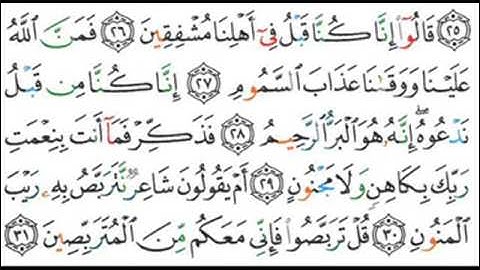 ﴿٢٥﴾ قَالُوٓا۟ إِنَّا كُنَّا قَبْلُ فِىٓ أَهْلِنَا مُشْفِقِينَ ﴿٢٦﴾ فَمَنَّ ٱللَّهُ
عَلَيْنَا وَوَقَىٰنَا عَذَابَ ٱلسَّمُومِ ﴿٢٧﴾ إِنَّا كُنَّا مِن قَبْلُ
نَدْعُوهُ ۖ إِنَّهُۥ هُوَ ٱلْبَرُّ ٱلرَّحِيمُ ﴿٢٨﴾ فَذَكِّرْ فَمَآ أَنتَ بِنِعْمَتِ
رَبِّكَ بِكَاهِنٍ وَلَا مَجْنُونٍ ﴿٢٩﴾ أَمْ يَقُولُونَ شَاعِرٌ نَّتَرَبَّصُ بِهِۦ رَيْبَ
ٱلْمَنُونِ ﴿٣٠﴾ قُلْ تَرَبَّصُوا۟ فَإِنِّى مَعَكُم مِّنَ ٱلْمُتَرَبِّصِينَ ﴿٣١﴾